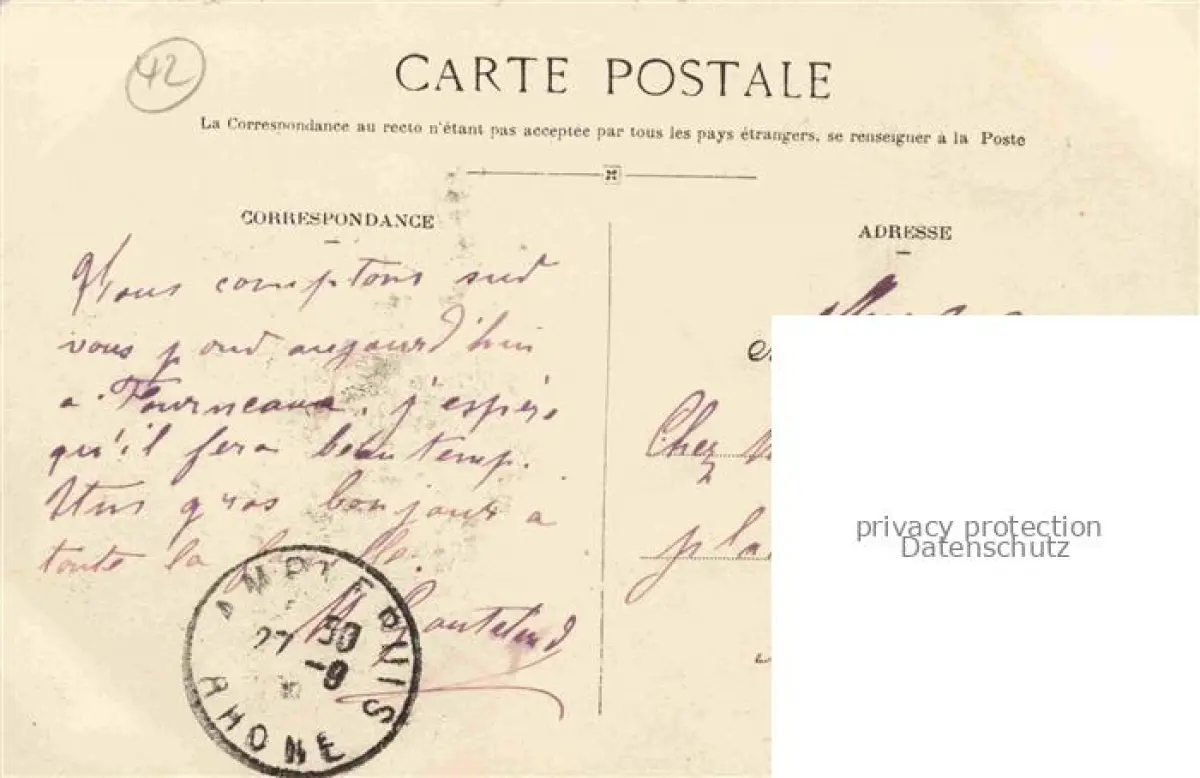 42
CARTE POSTALE
La Correspondance au recto n'étant pas acceptée par tous les pays étrangers, se renseigner à la Poste
CORRESPONDANCE
Nous comptons sur
vous aujourd'hui
a Fourneaux, j'espère
qu'il fera beau temp.
Un gros bonjour a
toute la famille.
AMPLEPUIS
RHONE
ADRESSE
Chez
privacy protection
Datenschutz